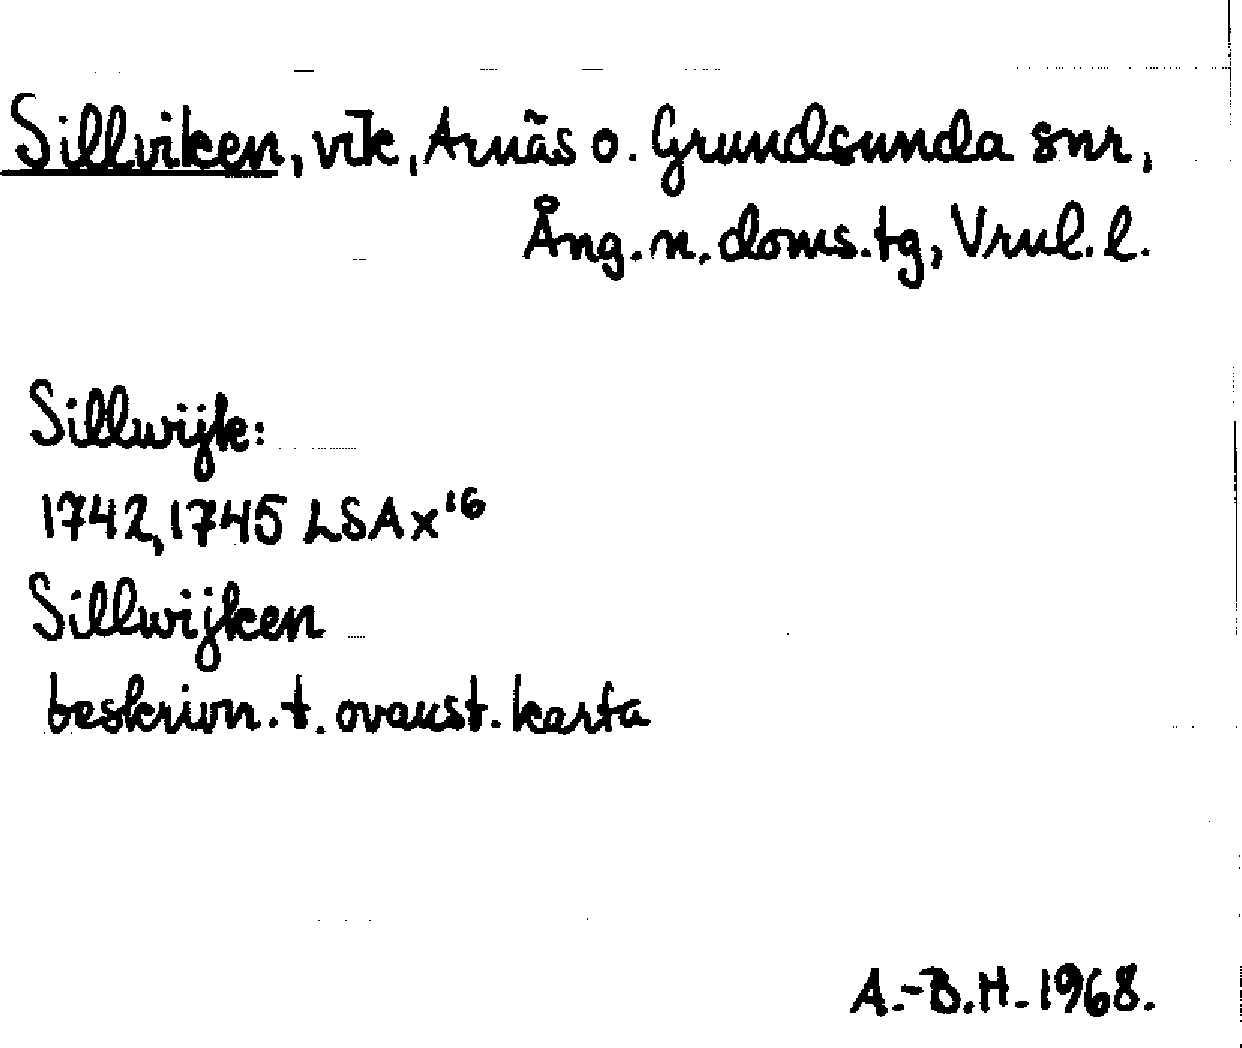 Sillviken, vik, Arnäs o. Grundsunda snr,
Ång. n. doms.tg, Vrnl. l.
Sillwijk:
1742, 1745 LSA x¹⁶
Sillwijken
beskrivn. t. ovanst. karta
A.-B.H. 1968.